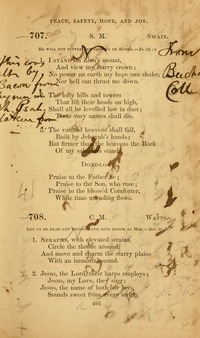 PEACE, SAFETY, HOPE, AND JOY.
707. S. M. SWAIN.
HE WILL NOT SUFFER
I STAND ON Zion's mount,
And view my starry crown;
No power on earth my hope can shake,
Nor hell can thrust me down.
The lofty hills and towers
That lift their heads on high,
Shall all be levelled low in dust;
Their very names shall die.
3. The vaulted heavens shall fall,
Built by Jehovah's hands;
But firmer than the heavens the Rock
Of my salvation stands.
From
Beecher
Coll
this
by
Bacon from
DOXOLOGY.
Praise to the Father be;
Praise to the Son, who rose;
Praise to the blessed Comforter,
While time unending flows.
708. C. M. WATTS.
LET US BE GLAD AND REJOICE AND GIVE HONOR TO HIM.—Rev.
1. SERAPHS, with elevated strains,
Circle the throne around;
And move and charm the starry plains
With an immortal sound.
2. Jesus, the Lord, their harps employs;
Jesus, my Love, they sing;
Jesus, the name of both our joys,
Sounds sweet from every string.
495